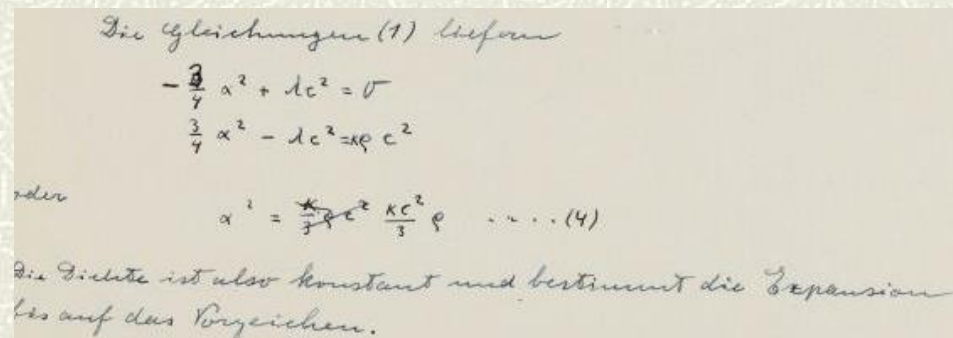 Die Gleichungen (1) liefern
- 3/4 α² + λc² = 0
3/4 α² - λc² = κρ c²
oder
α² = κ/3 ρ c² κc²/3 ρ ..... (4)
Die Dichte ist also konstant und bestimmt die Expansion
bis auf das Vorzeichen.